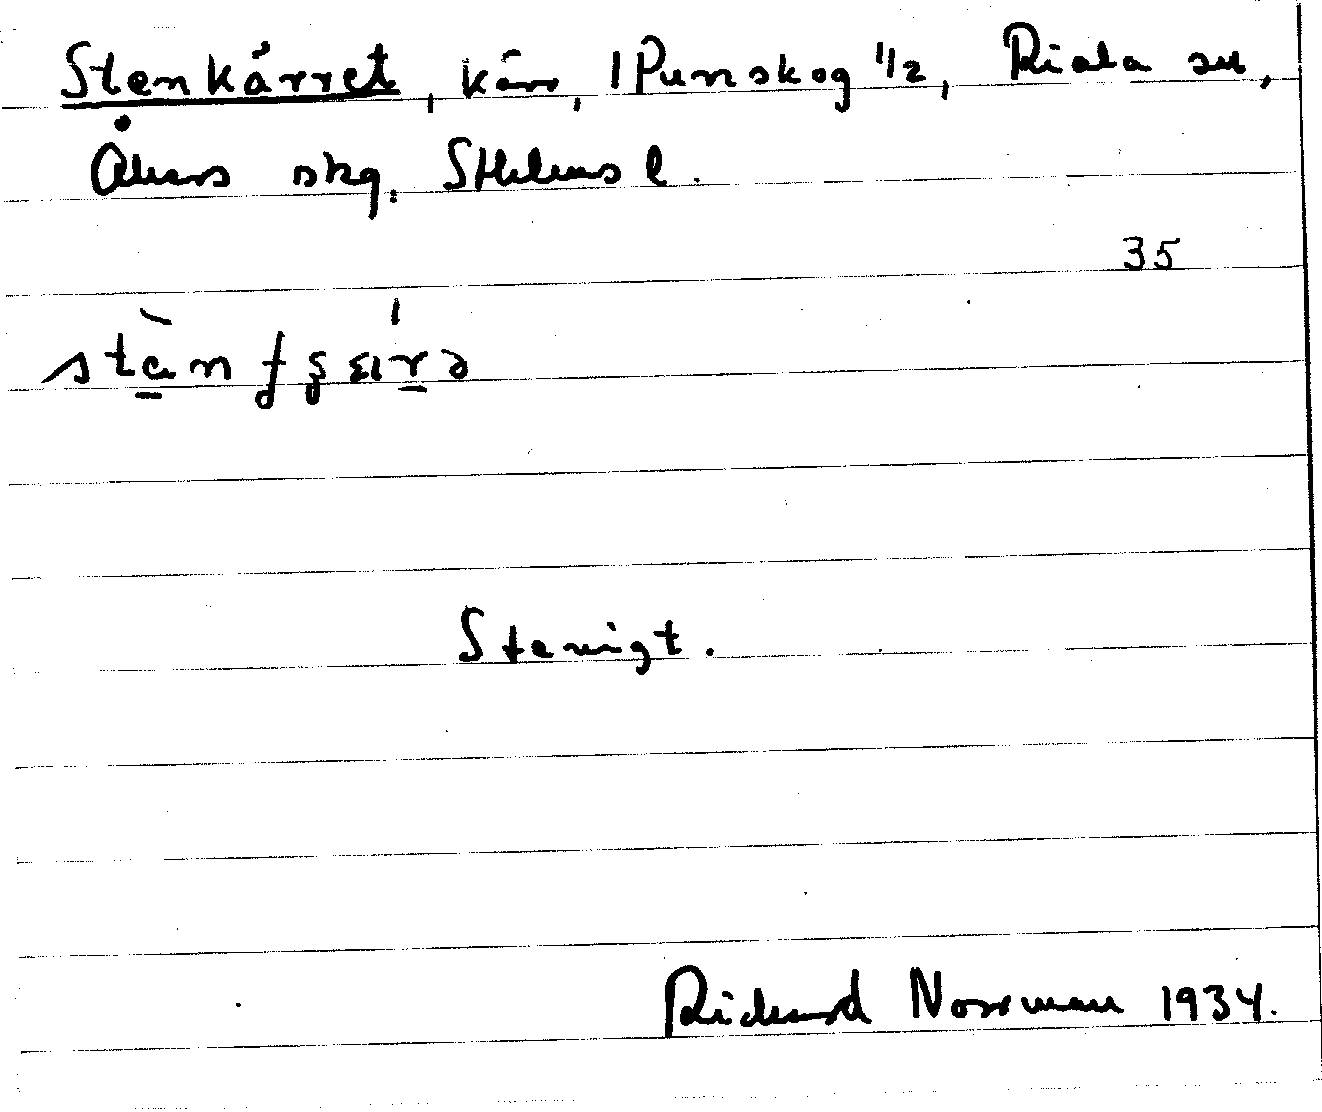 Stenkärret, kärr, 1 Punskog 1/2, Riala sn,
Åkers skg. Sthlms l.
35
Stenigt.
Richard Norrman 1934.